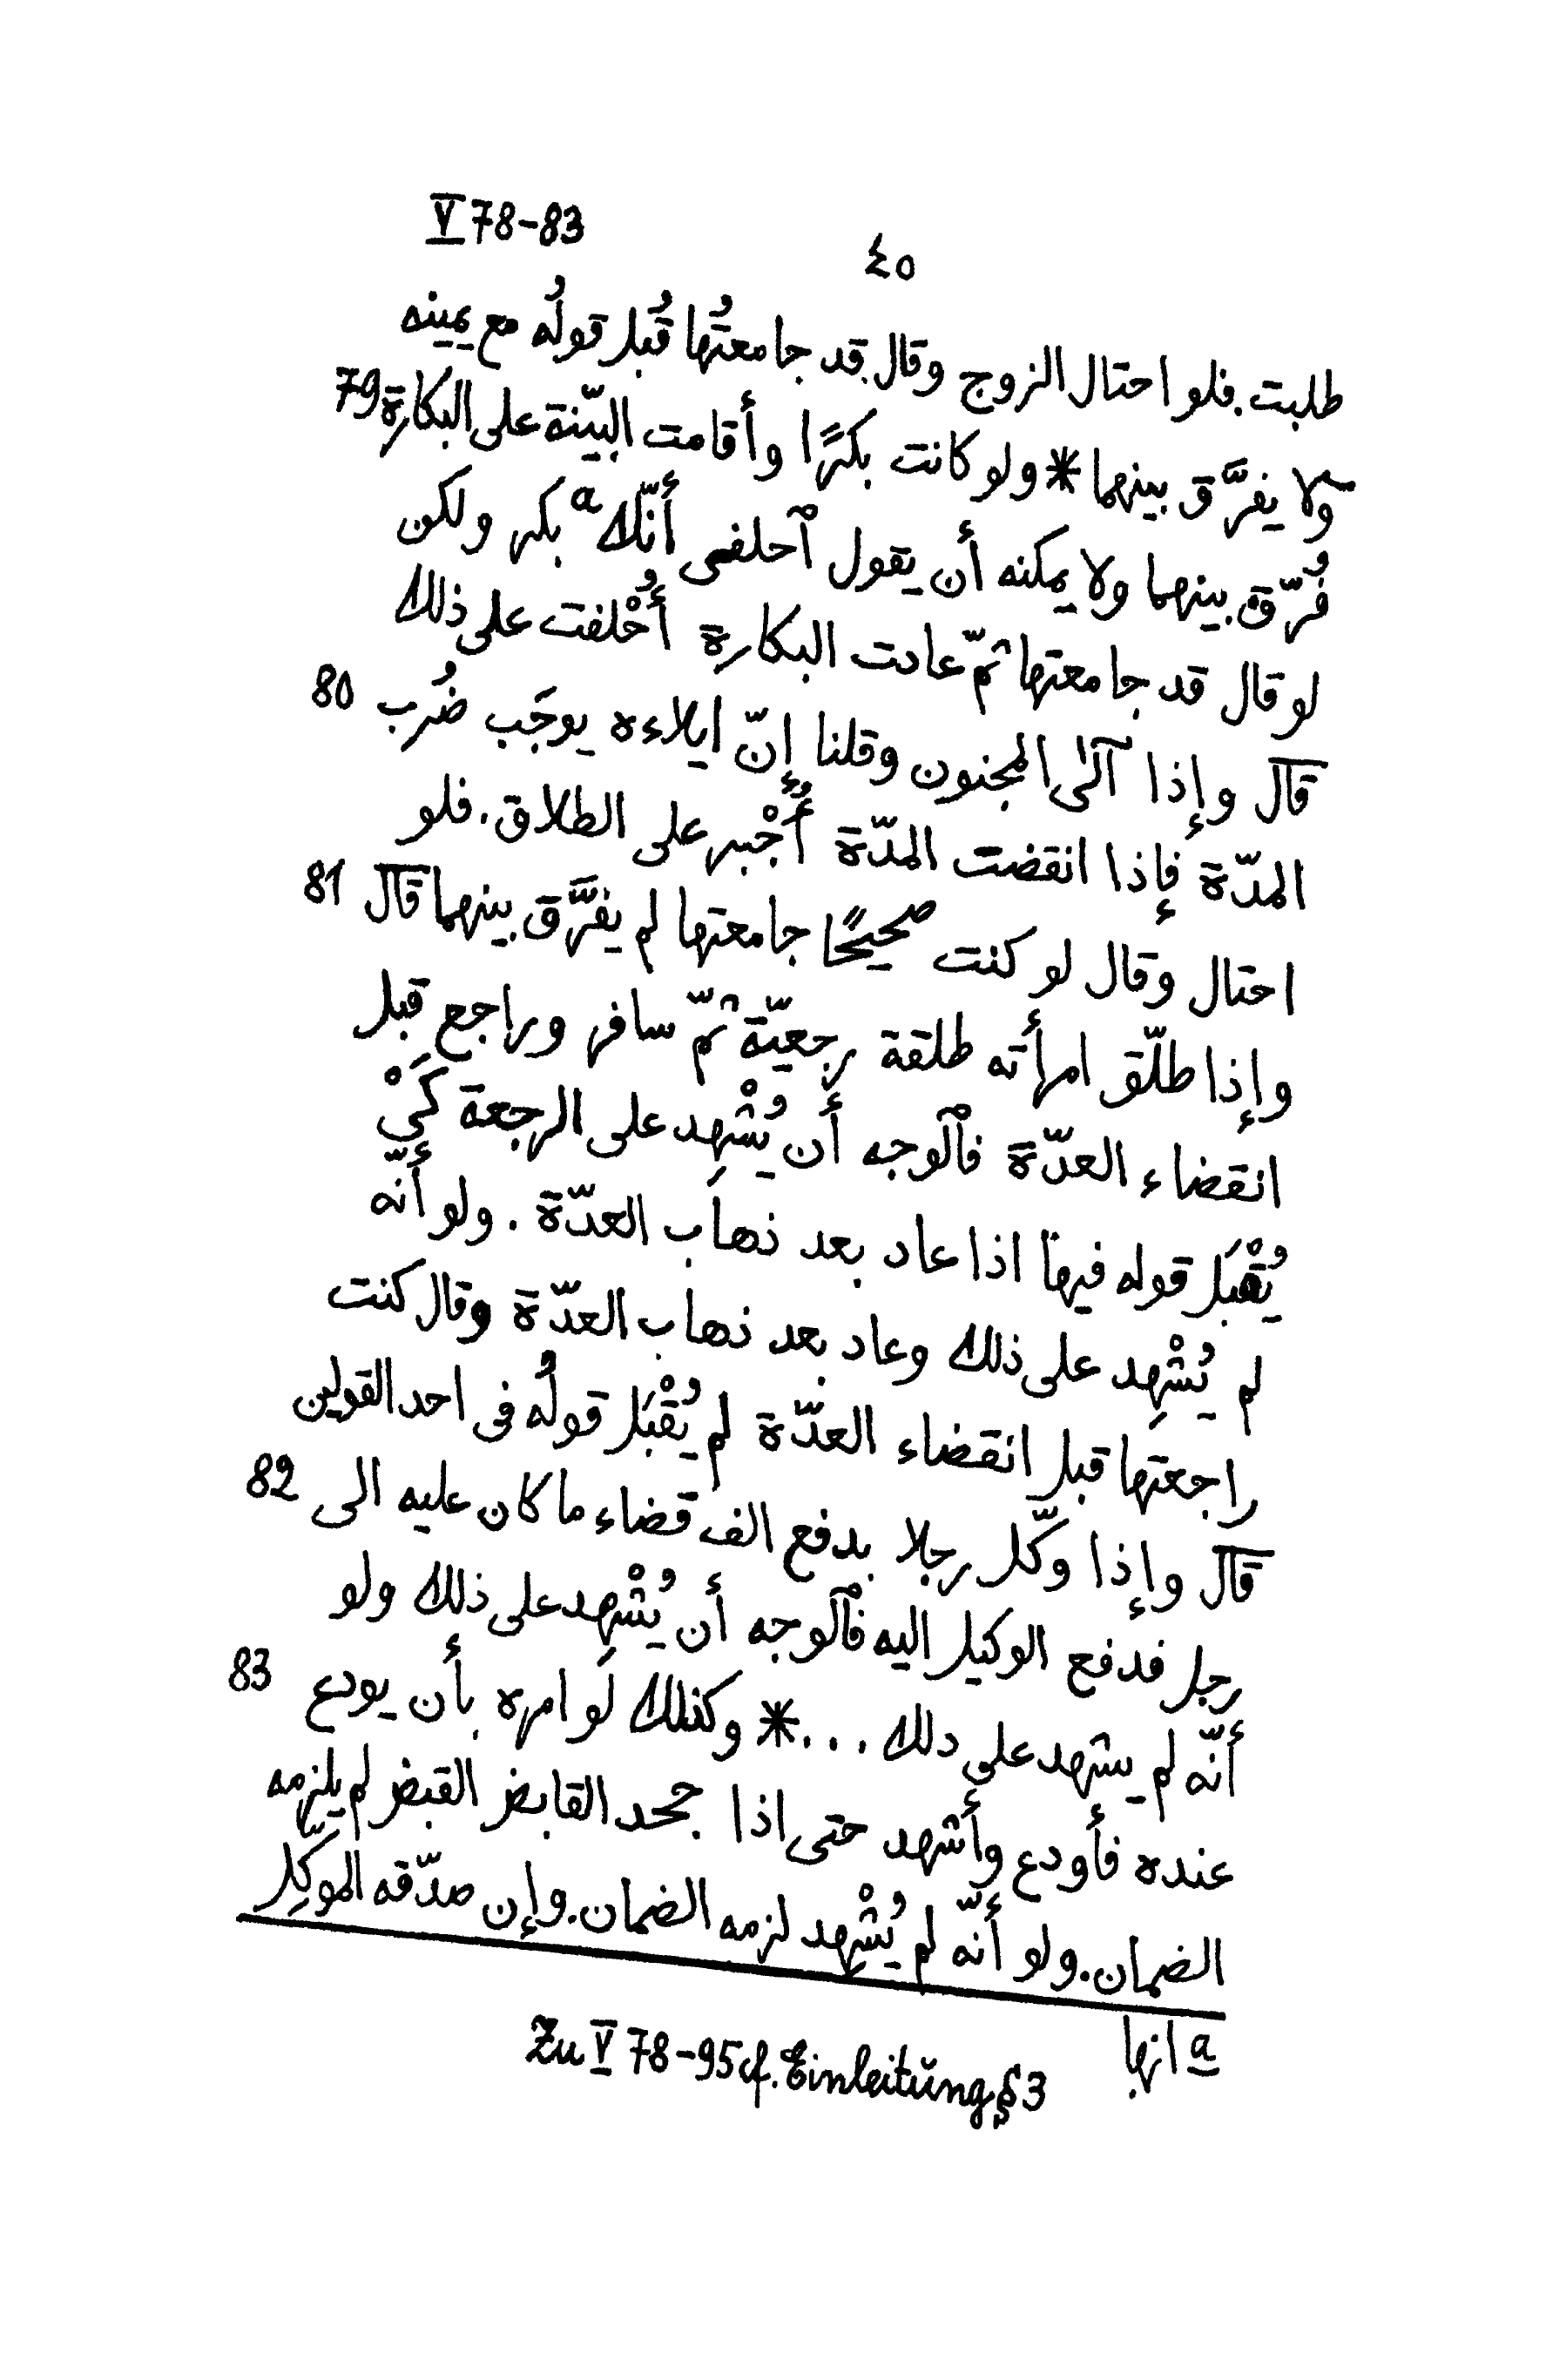 V 78-83
٤٥
طلبت. فلو احتال الزوج وقال قد جامعتُها قُبل قولُه مع يمينه
ولا يفرَّق بينهما * ولو كانت بكرًا وأقامت البيّنة على البكارة 79
فُرّق بينهما ولا يمكنه أن يقول ٱحلفى أنّك a بكر ولكن
لو قال قد جامعتها ثمّ عادت البكارة أُحْلفت على ذلك
قال وإذا آلى المجنون وقلنا إنّ ايلاءه يوجَب ضُرب 80
المدّة فإذا انقضت المدّة أُجْبر على الطلاق. فلو
احتال وقال لو كنت صحيحًا جامعتها لم يفرَّق بينهما قال 81
وإذا طلّق امرأته طلقة رجعيّة ثمّ سافر وراجع قبل
انقضاء العدّة فٱلوجه أن يُشْهِد على الرجعة كَىْ
يُقْبَل قوله فيها اذا عاد بعد ذهاب العدّة. ولو أنّه
لم يُشْهِد على ذلك وعاد بعد ذهاب العدّة وقال كنت
راجعتها قبل انقضاء العدّة لم يُقْبَل قولُه فى احد القولين
قال وإذا وكّل رجلا بدفع الف قضاء ما كان عليه الى 82
رجل فدفع الوكيل اليه فٱلوجه أن يُشْهِد على ذلك ولو
أنّه لم يشهد على دلك ...* وكذلك لو امره بأن يودع 83
عنده فأودع وأشهد حتى اذا جحد القابض القبض لم يلزمه
الضمان. ولو أنّه لم يُشْهِد لزمه الضمان. وإن صدّقه الموكِّل
a انها
Zu V 78-95 cf. Einleitung § 3